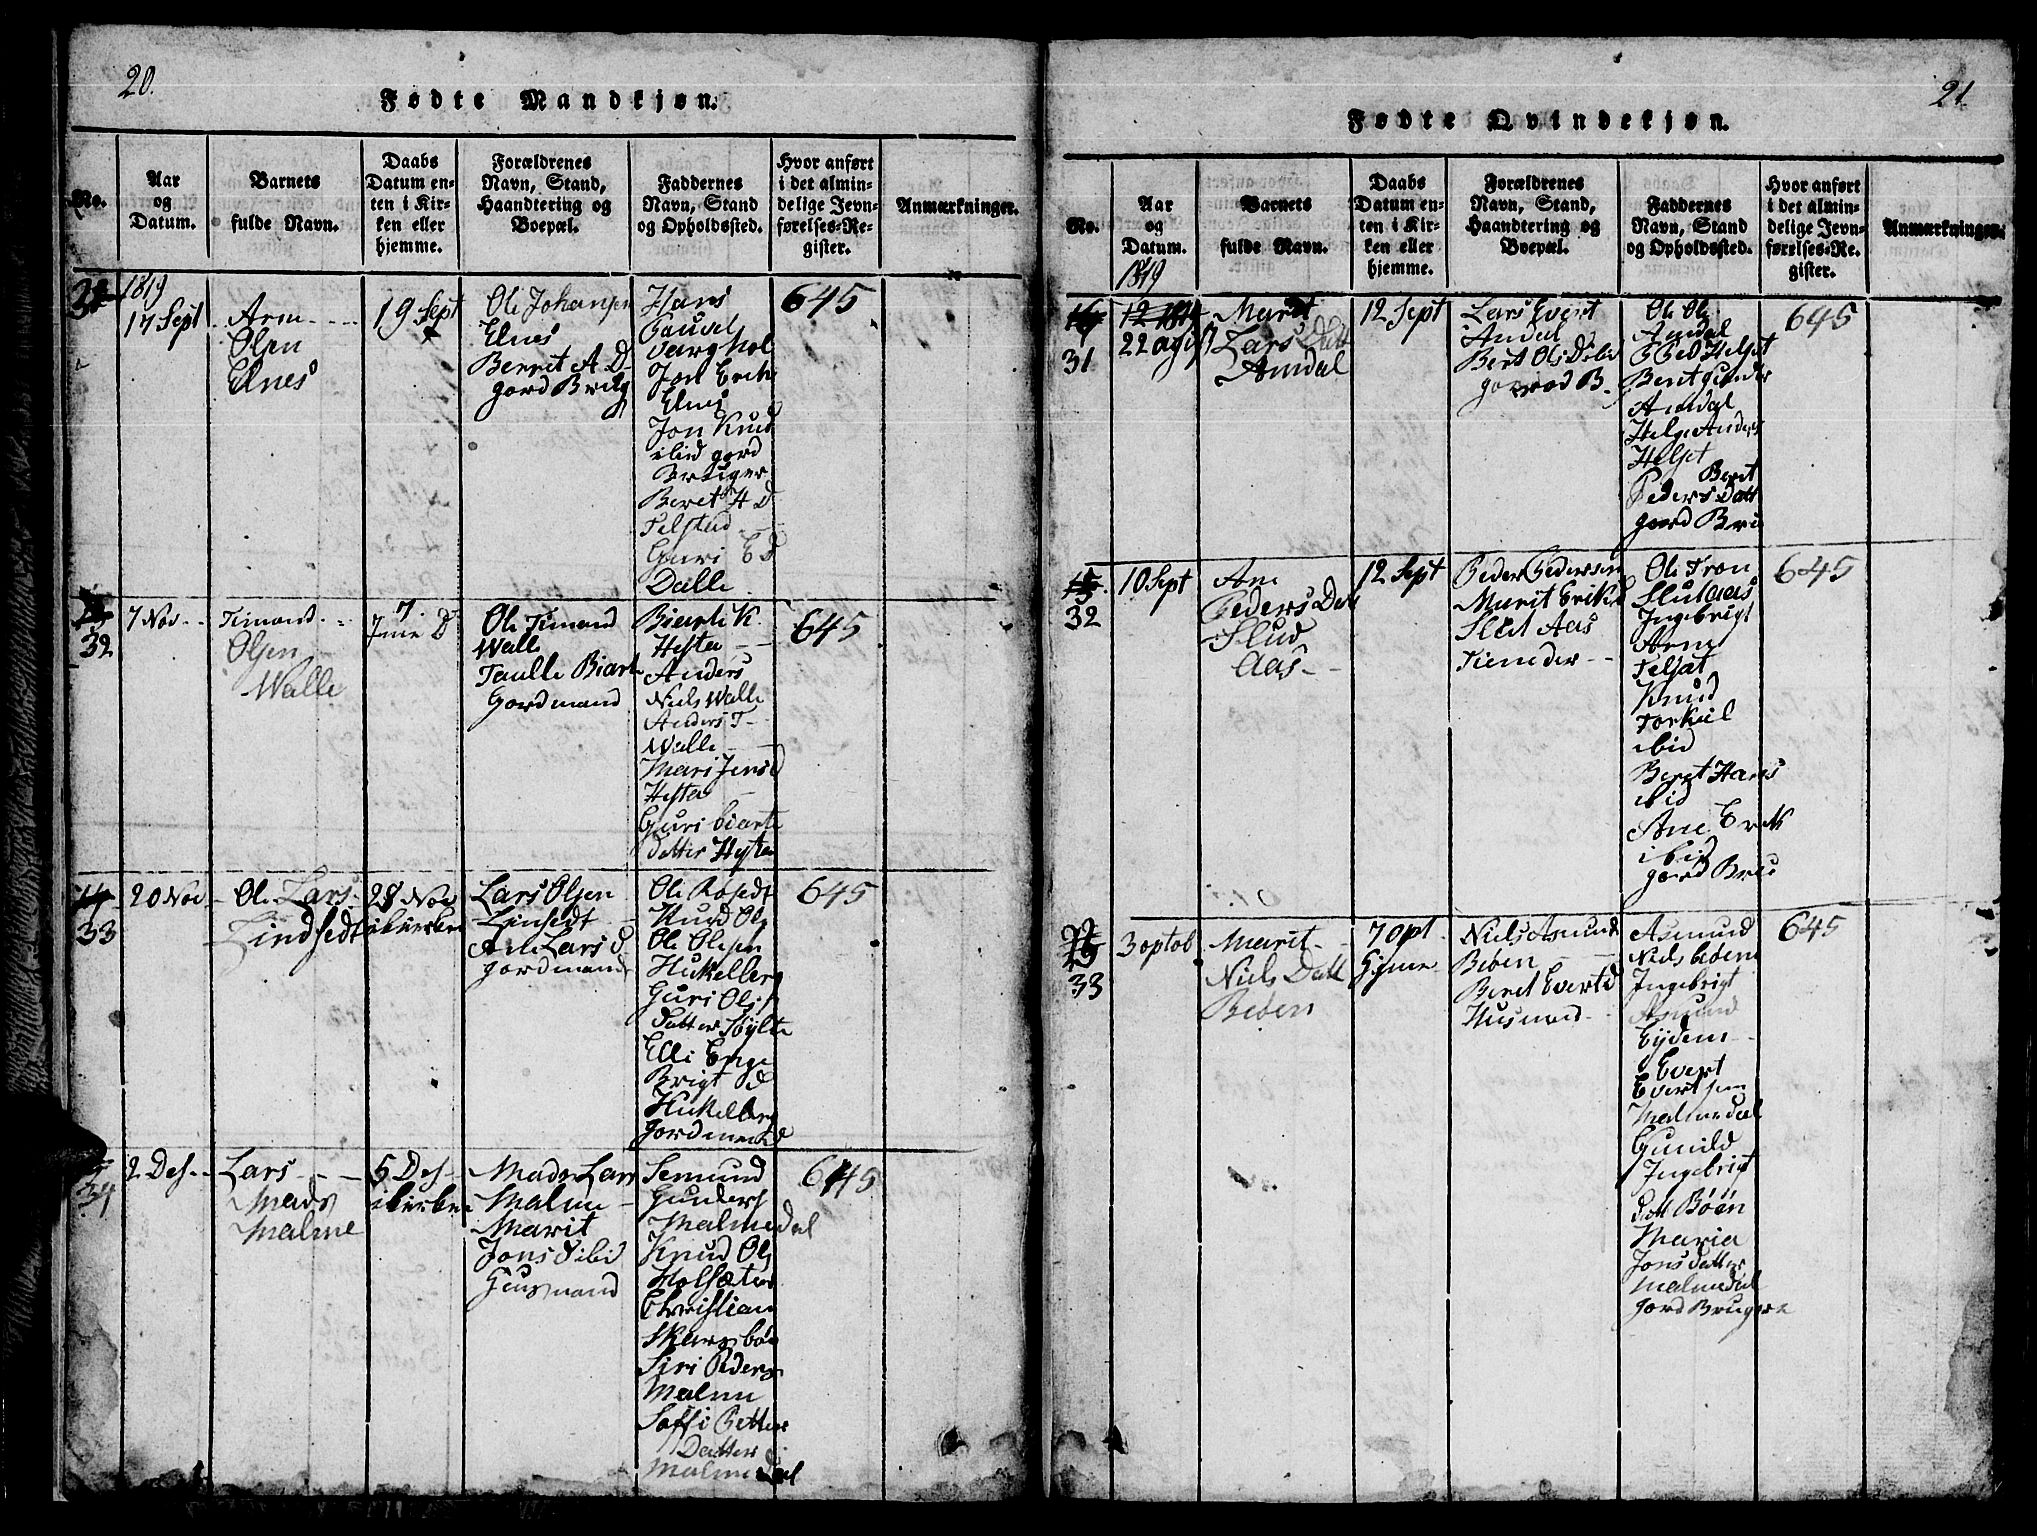 20.
Fødte Mandkjøn.
No.
Aar
og
Datum.
Barnets
fulde Navn.
Daabs
Datum en-
ten i Kir-
ken eller
hjemme.
Forældrenes
Navn, Stand,
Haandtering og
Boepæl.
Faddernes
Navn, Stand
og Opholdssted.
Hvor anført
i det almin-
delige Jevn-
førelses-Re-
gister.
Anmærkninger.
1819
17 Sept
Arn
Olsen
Elnes
19 Sept
Ole Johansen
Elnes
Berret A D
gord Brug
Hans
Jon Erik
Elnes
Jon Knud
ibid gord
Bruger
Beret H D
Telstad
Guri E D
Dalle
645
32
7 Nov
Timand
Olsen
Walle
7.
Ole Timand
Walle
Taulle Biart
Gordmand
Biarte K.
Hesta
Anders
Niels Walle
Anders T
Walle
Mari Jens d
Hesta
Guri biarte
datter Hesta
645
14
33
20 Nov
Ole Lars
Lindsedt
28 Nov
i kirken
Lars Olsen
Linsedt
Lars d
gordmand
Ole Rosedt
Knud Ols
Ole Olsen
Hukelberg
Guri Ols
datter Hylte
Elli Enge
Brigt d
Hukelberg
Gordmand
645
34
2 Des
Lars
Mads
Malme
5 Des
i kirken
Mads Lars
Malme
Marit
Jons d ibid
Husmand
Semund
Gunders
Malmedal
Knud Ols
Holsæter
Christian
Skarsbøe
Siri Peders
Malme
Soffi Petter
Datter
Malmedal
645
21
Fødte Qvindekjøn.
No.
Aar
og
Datum.
Barnets
fulde Navn.
Daabs
Datum en-
ten i Kir-
ken eller
hjemme.
Forældrenes
Navn, Stand,
Haandtering og
Boepæl.
Faddernes
Navn, Stand
og Opholdssted.
Hvor anført
i det almin-
delige Jevn-
førelses-Re-
gister.
Anmærkninger.
1819
31
22 agust
Marit
Lars Datt
Amdal
12 Sept
Lars Evert
Amdal
Berit Ols
B
Ole Ols
Amdal
Helset
Berit Gunder
Amdal
Helge Anders
Helset
Beret
Peders Datt
gord Bru
645
15
32
10 Sept
Ane
Peders Dat
Slud
Aas
12 Sept
Peder Pedersen
Marit Eriks d
Slut Aas
Ole Tron
Slutaas
Ingebrigt
Arne
Telsæt
Knud
Torkiil
ibid
Beret Hans
ibid
Ane Eriks
ibid
gord Bru
645
33
3 optob
Marit
Niels Datt
Bøen
7 Opt
Hjeme
Niels Asmund
Bøen
Beret Everts d
Husmand
Asmund
Niels bøen
Ingebrigt
Asmund
Eydem
Evert
Evertsen
Malmedal
Gunild
Ingebrigt
datt Bøen
Maria
Jons datter
Malmedal
Jord Brugere
645